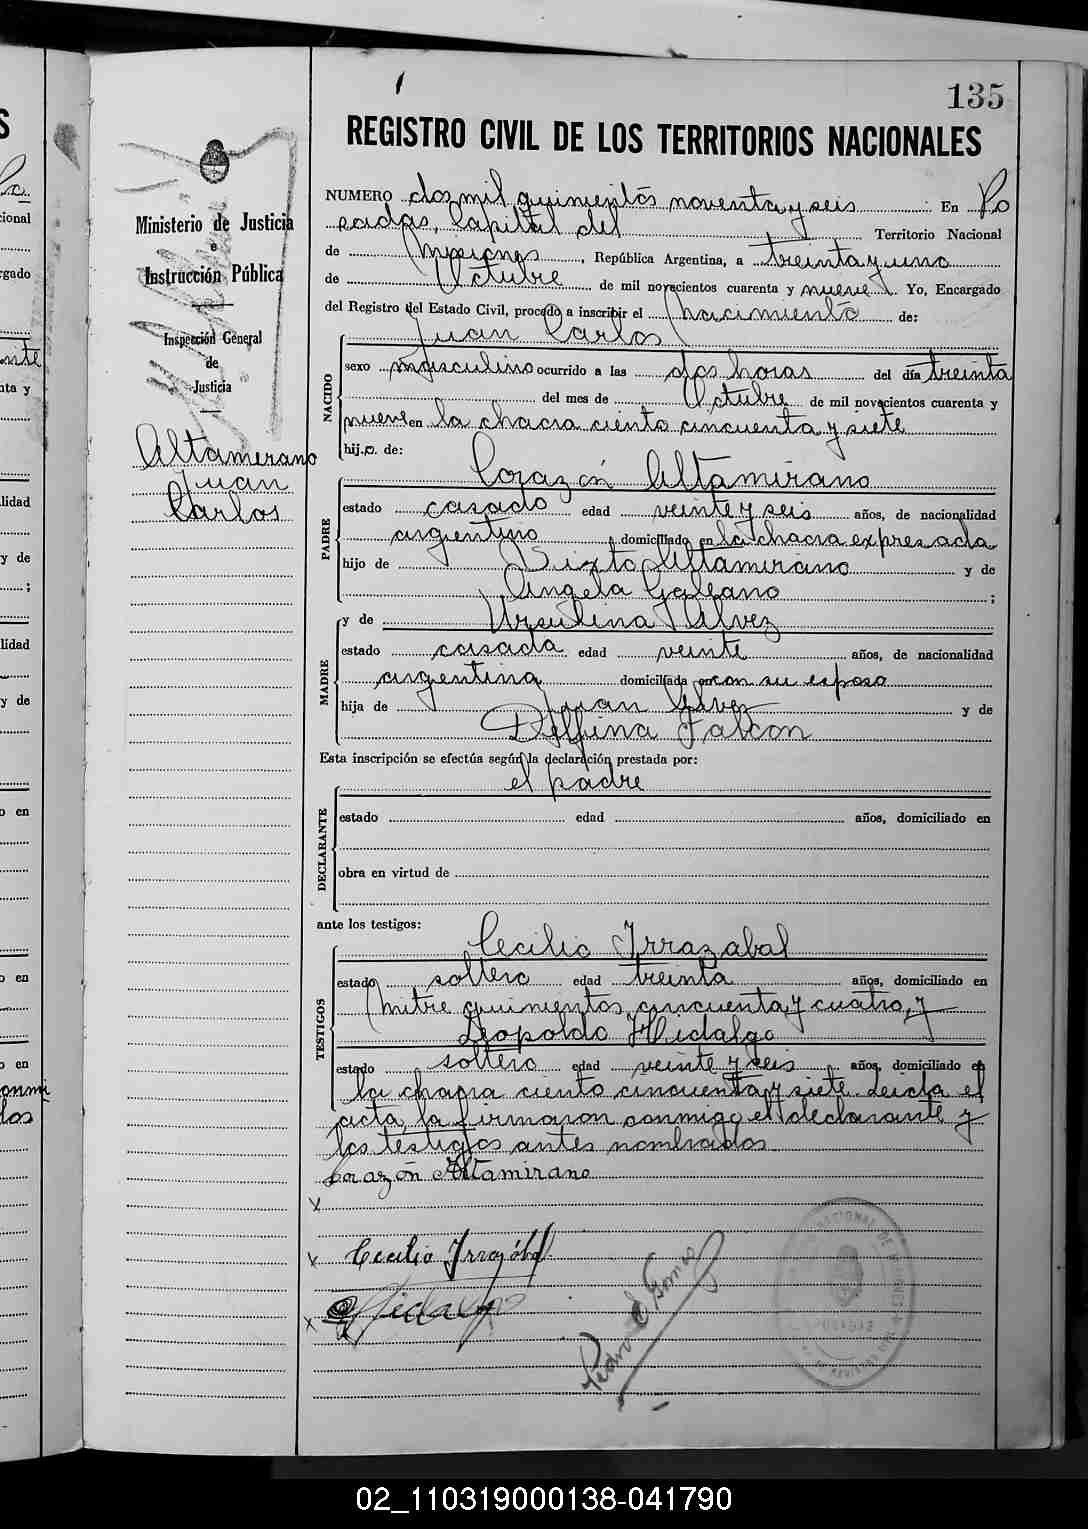 135
REGISTRO CIVIL DE LOS TERRITORIOS NACIONALES
Ministerio de Justicia
e
Instrucción Pública
Inspección General
de
Justicia
Altamirano
Juan
Carlos
NUMERO dos mil quinientos noventa y seis : En Po
sadas, Capital del Territorio Nacional
de Misiones, República Argentina, a treinta y uno
de Octubre de mil novecientos cuarenta y nueve. Yo, Encargado
del Registro del Estado Civil, procedo a inscribir el nacimiento de:
Juan Carlos
NACIDO
sexo masculino ocurrido a las dos horas del día treinta
del mes de Octubre de mil novecientos cuarenta y
nueve en la chacra ciento cincuenta y siete
hij.o. de:
Corazón Altamirano
PADRE
estado casado edad veinte y seis años, de nacionalidad
argentino domiciliado en la chacra expresada
hijo de Sixto Altamirano y de
Angela Galeano ;
y de Ursulina Alvez
MADRE
estado casada edad veinte años, de nacionalidad
argentina domiciliada en con su esposo
hija de Juan Alvez y de
Delfina Falcon
Esta inscripción se efectúa según la declaración prestada por:
el padre
DECLARANTE
estado edad años, domiciliado en
obra en virtud de
ante los testigos:
Cecilio Irrazabal
TESTIGOS
estado soltero edad treinta años, domiciliado en
Mitre quinientos cincuenta y cuatro, y
Leopoldo Hidalgo
estado soltero edad veinte y seis años, domiciliado en
la chacra ciento cincuenta y siete. Leida el
acta, la firmaron conmigo el declarante y
los testigos antes nombrados
Corazón Altamirano
x
x Cecilio Irrazábal
x Hidalgo
Pedro E Gomes
02_110319000138-041790